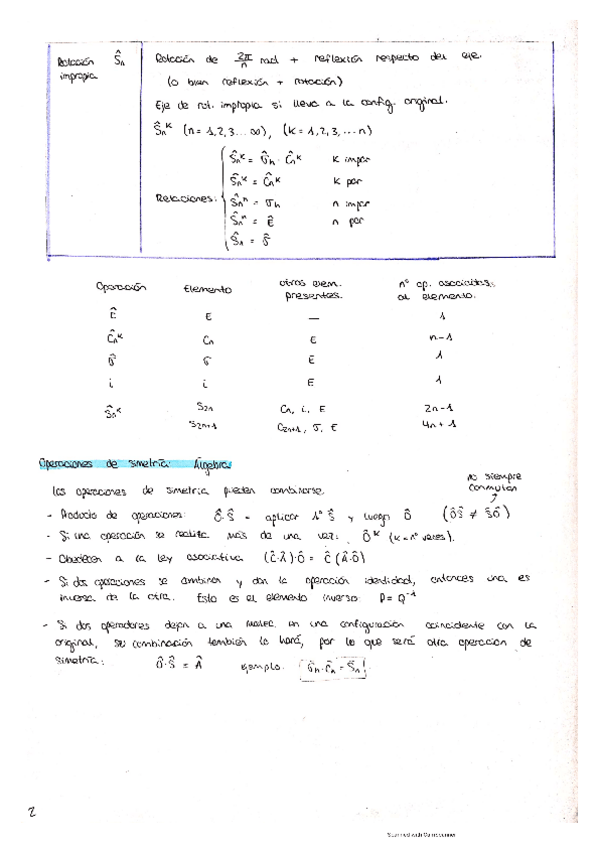 Rotación impropia Ŝn
Rotación de 2π/n rad + reflexión respecto del eje.
(o bien reflexión + rotación)
Eje de rot. impropia si lleva a la config. original.
Ŝn^k (n = 1,2,3... ∞), (k = 1,2,3, ... n)
Relaciones:
Ŝn^k = σ̂h · Ĉn^k k impar
Ŝn^k = Ĉn^k k par
Ŝn^n = σh n impar
Ŝn^n = Ê n par
Ŝn = σ̂
Operación Elemento otros elem. presentes. nº op. asociadas al elemento.
Ê E — 1
Ĉn^k Cn E n-1
σ̂ σ E 1
i i E 1
Ŝn^k S2n Cn, i, E 2n-1
S2n+1 C2n+1, σ, E 4n+1
Operaciones de simetría: Álgebra
Las operaciones de simetría pueden combinarse.
no siempre conmutan
- Producto de operaciones: Ô·Ŝ = aplicar 1º Ŝ y luego Ô (ÔŜ ≠ ŜÔ)
- Si una operación se realiza más de una vez: Ô^k (k = nº veces).
- Obedecen a la ley asociativa (Ĉ·Â)·Ô = Ĉ(Â·Ô)
- Si dos operaciones se combinan y dan la operación identidad, entonces una es
inversa de la otra. Esto es el elemento inverso: P = Q^-1
- Si dos operadores dejan a una molec. en una configuración coincidente con la
original, su combinación también lo hará, por lo que será otra operación de
simetría: Ô·Ŝ = Â ejemplo: σ̂h·Ĉn = Ŝn
2
Scanned with CamScanner